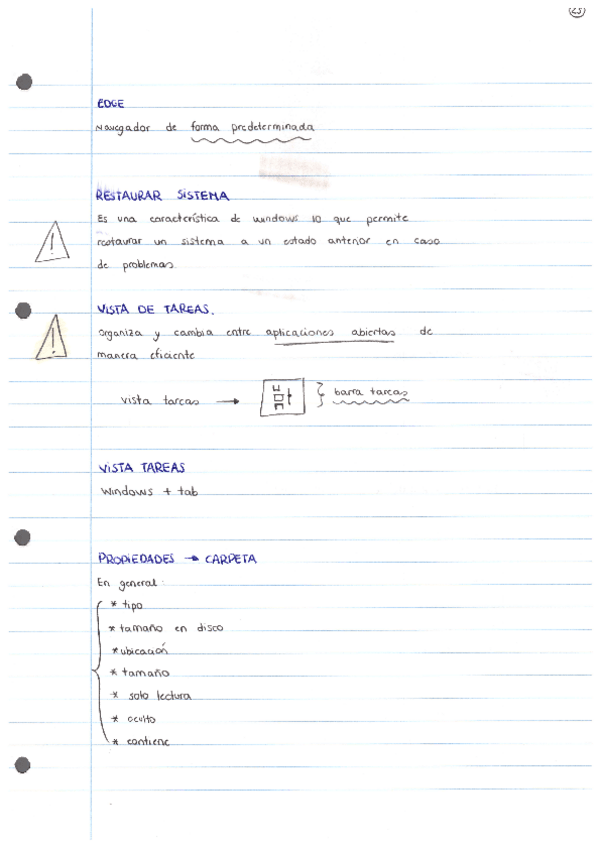 23
EDGE
Navegador de forma predeterminada
RESTAURAR SISTEMA
Es una característica de windows 10 que permite
restaurar un sistema a un estado anterior en caso
de problemas.
VISTA DE TAREAS.
organiza y cambia entre aplicaciones abiertas de
manera eficiente
vista tareas → } barra tareas
VISTA TAREAS
Windows + tab
PROPIEDADES → CARPETA
En general:
* tipo
* tamaño en disco
* ubicación
* tamaño
* solo lectura
* oculto
* contiene